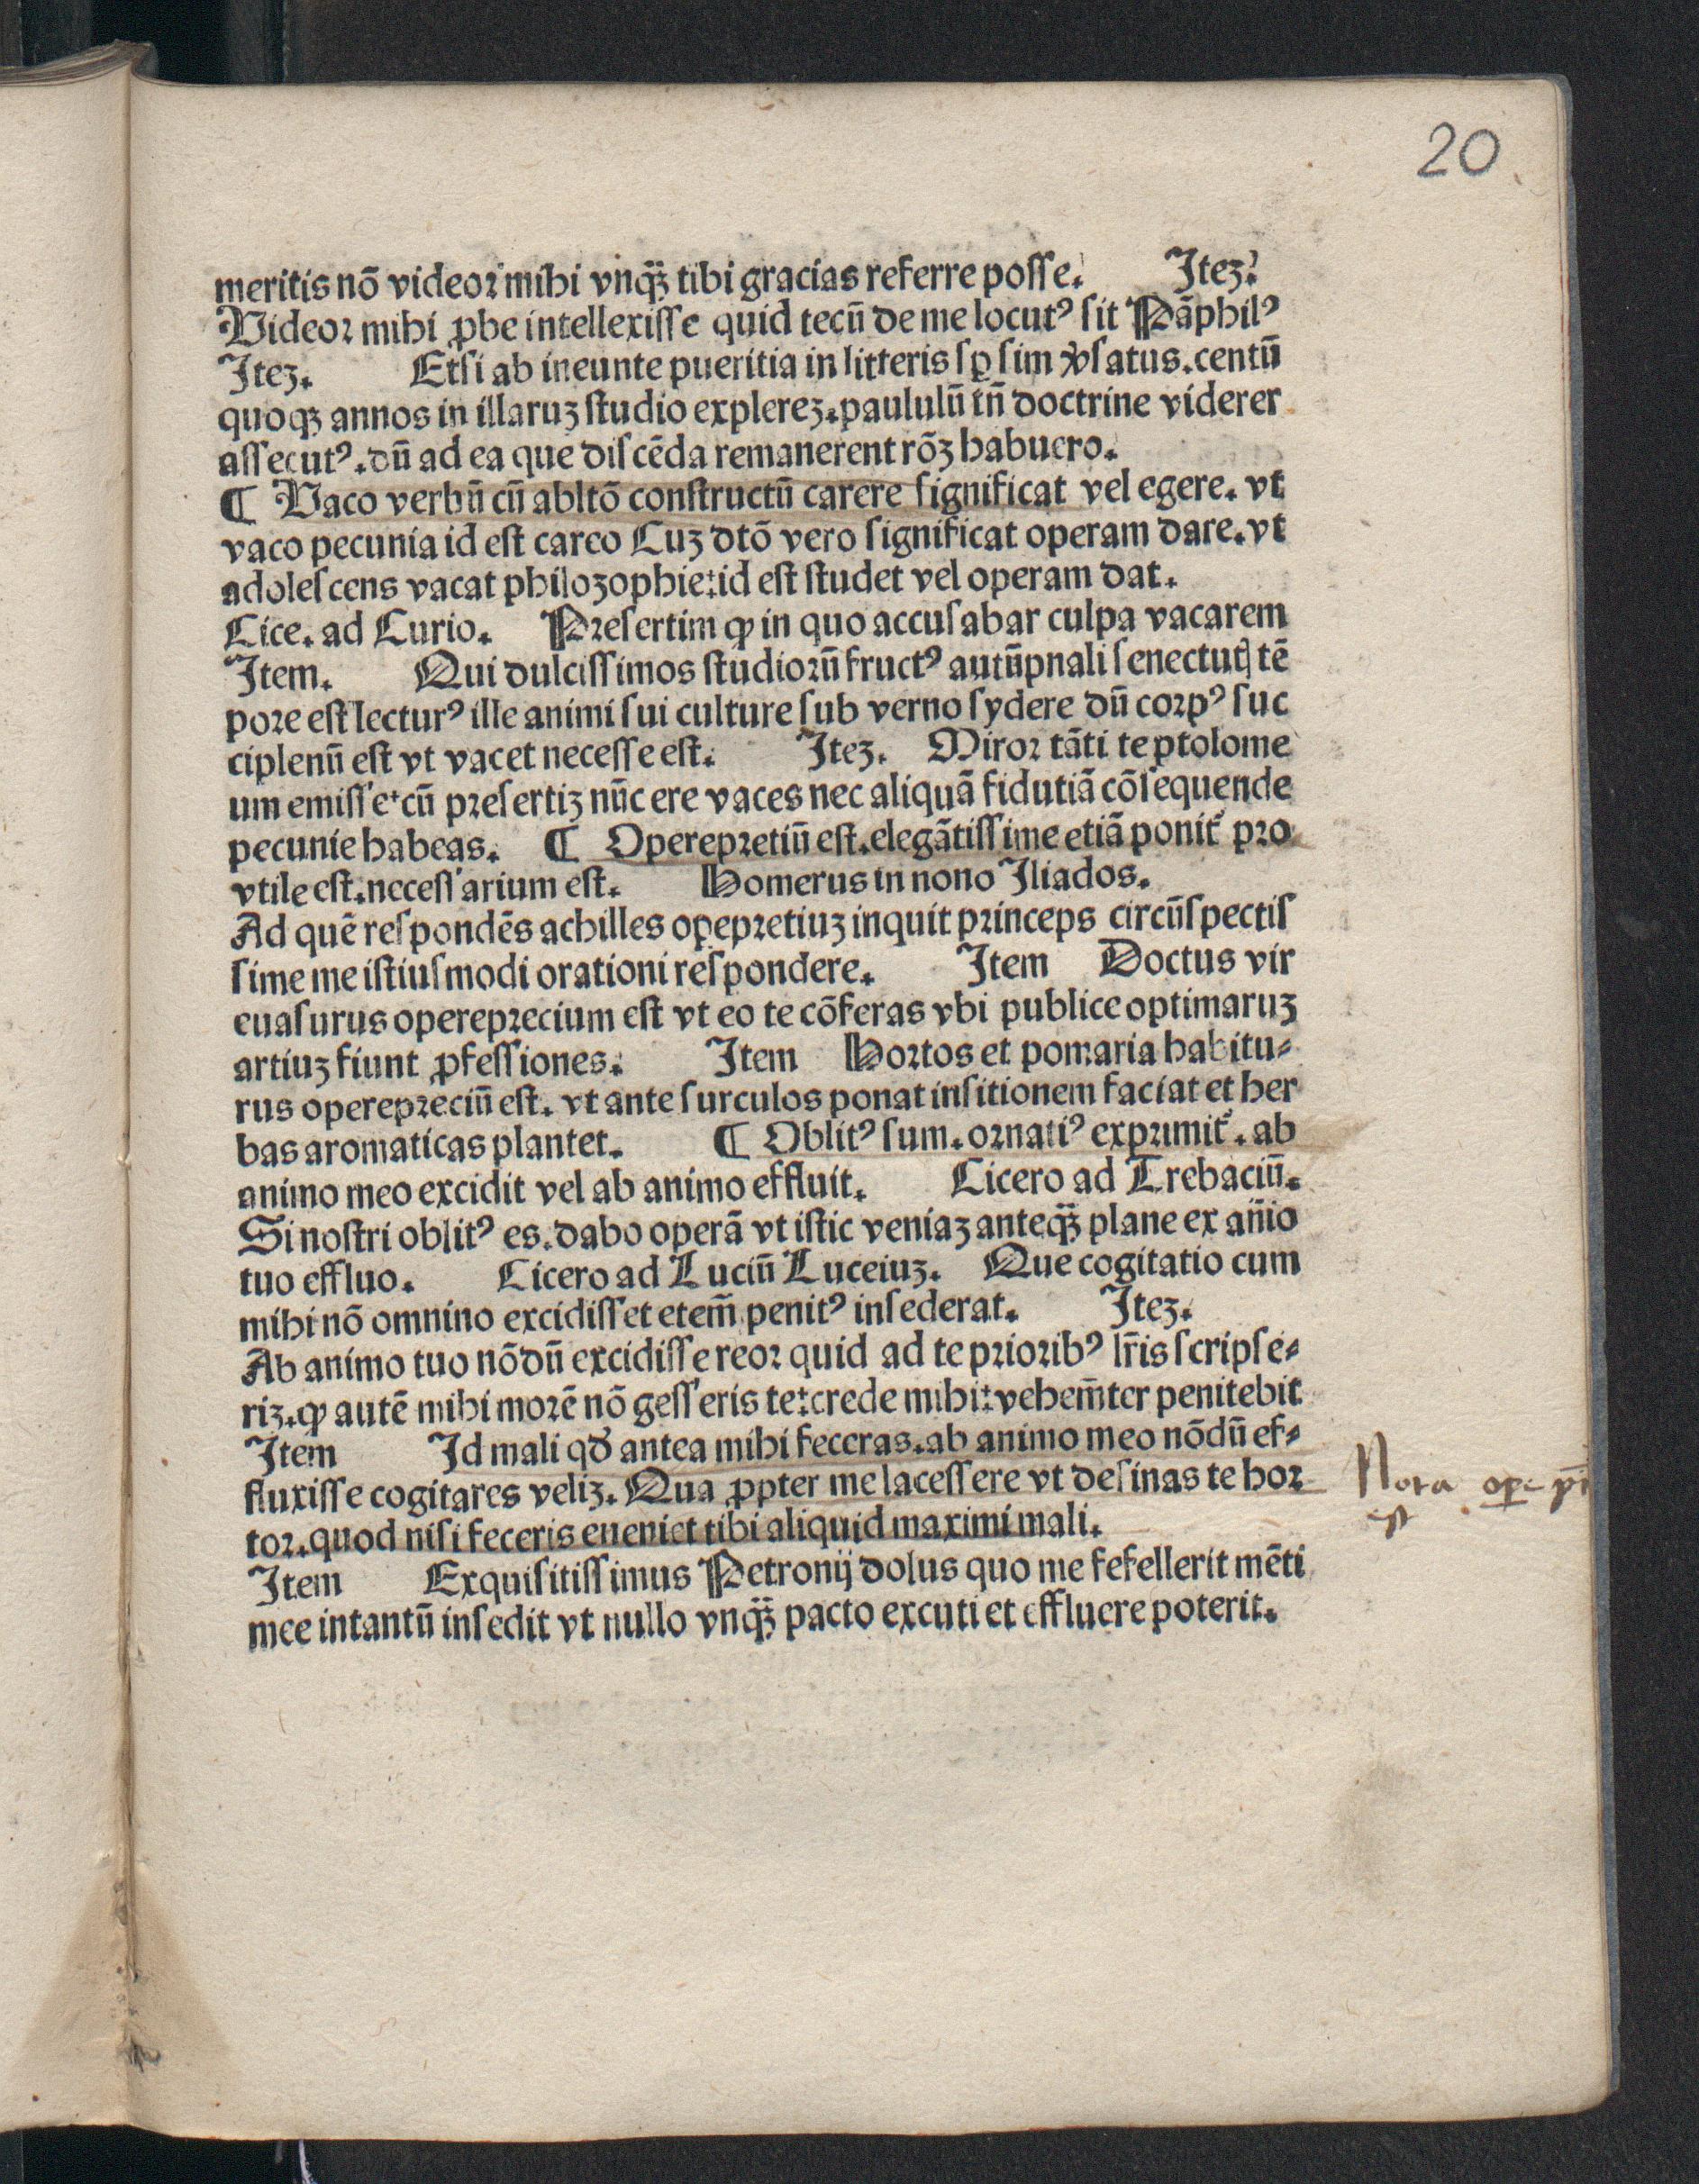 20
meritis nō videor mihi vnqȝ̈ tibi gracias referre posse. Iteȝ.
Videor mihi ꝓbe intellexisse quid tecū de me locutꝰ sit Pāphilꝰ
Iteȝ. Etsi ab ineunte pueritia in litteris sꝑ sim ꝟsatus. centū
quoqȝ annos in illaruȝ studio explereȝ. paululū tn̄ doctrine viderer
assecutꝰ. dū ad ea que discēda remanerent rōȝ habuero.
¶ Vaco verbū cū abltō constructū carere significat vel egere. vt
vaco pecunia id est careo Cuȝ dtō vero significat operam dare. vt
adolescens vacat philoȝophie: id est studet vel operam dat.
Cice. ad Curio. Presertim ꝙ in quo accusabar culpa vacarem
Item. Qui dulcissimos studiorū fructꝰ autūpnali senectutꝭ tē
pore est lecturꝰ ille animi sui culture sub verno sydere dū corpꝰ suc
ciplenū est vt vacet necesse est. Iteȝ. Miror tāti te ptolome
um emisse: cū presertiȝ nūc ere vaces nec aliquā fidutiā cōsequende
pecunie habeas. ¶ Operepretiū est. elegātissime etiā ponit᷑ pro
vtile est. necessarium est. Homerus in nono Iliados.
Ad quē respondēs achilles opeꝑpretiuȝ inquit princeps circūspectis
sime me istiusmodi orationi respondere. Item Doctus vir
euasurus opereprecium est vt eo te cōferas vbi publice optimaruȝ
artiuȝ fiunt ꝓfessiones. Item Hortos et pomaria habitu⸗
rus operepreciū est. vt ante surculos ponat insitionem faciat et her
bas aromaticas plantet. ¶ Oblitꝰ sum. ornatiꝰ exprimit᷑. ab
animo meo excidit vel ab animo effluit. Cicero ad Trebaciū.
Si nostri oblitꝰ es. dabo operā vt istic veniaȝ anteqȝ̈ plane ex an̄io
tuo effluo. Cicero ad Luciū Luceiuȝ. Que cogitatio cum
mihi nō omnino excidisset etem̄ penitꝰ insederat. Iteȝ.
Ab animo tuo nōdū excidisse reor quid ad te prioribꝰ lr̄is scripse⸗
riȝ. ꝙ autē mihi morē nō gesseris te: crede mihi: vehem̄ter penitebit
Item Id mali qď antea mihi feceras. ab animo meo nōdū ef⸗
fluxisse cogitares veliȝ. Qua ꝓpter me lacessere vt desinas te hor
tor. quod nisi feceris eueniet tibi aliquid maximi mali.
Nota
Item Exquisitissimus Petronij dolus quo me fefellerit mēti
mee intantū insedit vt nullo vnqȝ̈ pacto excuti et effluere poterit.